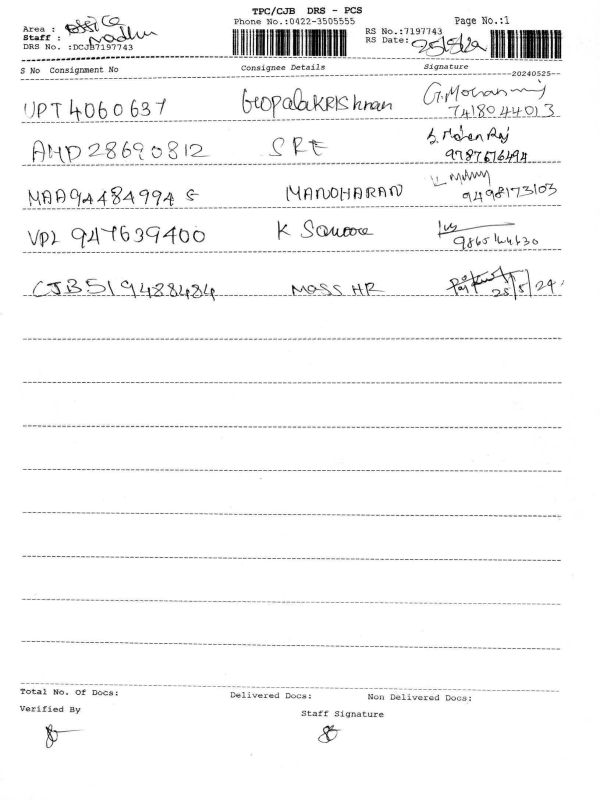 TPC/CJB DRS - PCS
Area : office
Phone No.:0422-3505555
Page No.:1
Staff : Madhu
RS No.:7197743
DRS No. :DCJB7197743
RS Date: 25/5/24
S No Consignment No Consignee Details Signature
--20240525--
UPT4060637 Gopalakrishnan G.Mohanraj
7418044013
AMD28690812 SRE S. Mohan Raj
9787676494
MAA944849945 MANOHARAN
9498173103
VPL 947639400 K
9865144630
CJB519488484 MASS HR
25/5/24
Total No. Of Docs: Delivered Docs: Non Delivered Docs:
Verified By Staff Signature